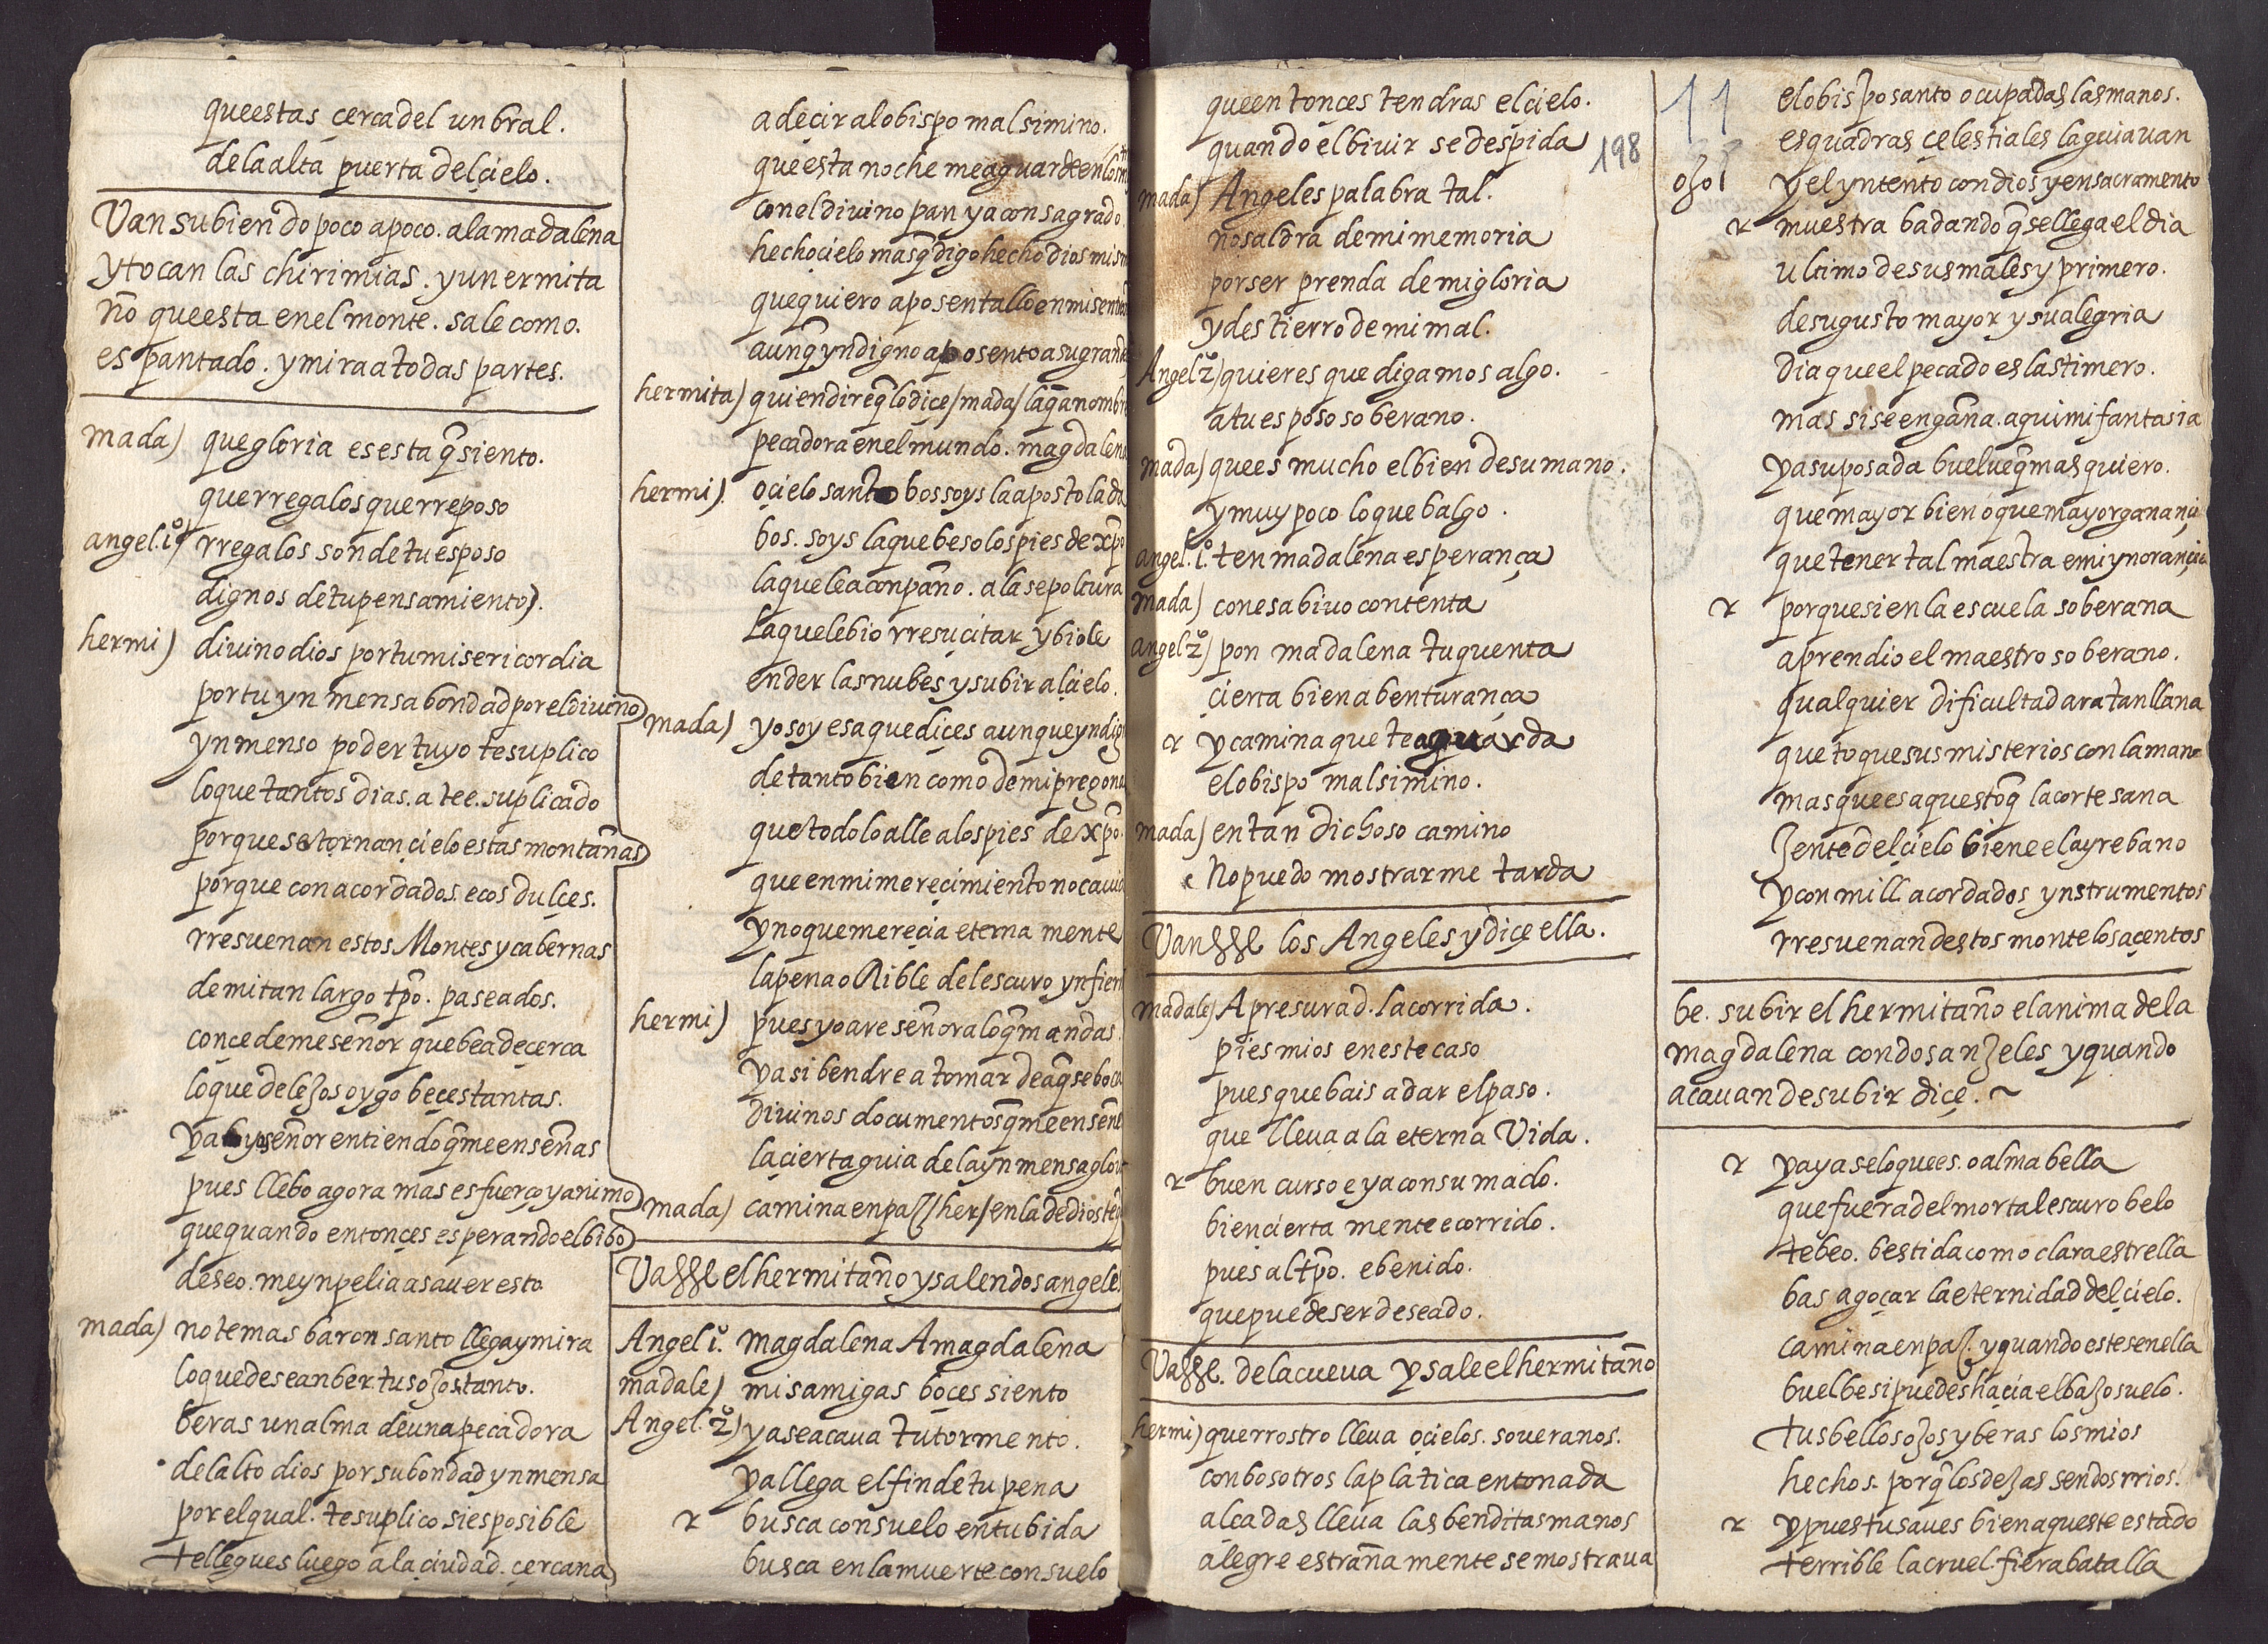 que estas çerca del unbral.
de la alta puerta del çielo.
Van subiendo poco a poco. a la madalena
y tocan las chirimias. y un ermita
ño que esta en el monte. sale como.
espantado. y mira a todas partes.
mada) que gloria es esta q̃ siento.
que rregalos que rreposo
angel.1º) rregalos son de tu esposo
dignos de tu pensamiento).
hermi) divino dios por tu misericordia
por tu ynmensa bondad por el divino
ynmenso poder tuyo te suplico
lo que tantos dias. a tee. suplicado
porque se tornan çielo estas montañas
porque con acordados. ecos dulçes.
rresuenan estos Montes y cabernas
de mi tan largo tp̃o. paseados.
conçedeme señor que bea de çerca
lo que de lejos oygo beçes tantas.
ya señor entiendo q̃ me enseñas
pues llebo agora mas esfuerço y animo
que quando entonçes esperando el bibo
deseo. me ynpelia a saver esto
mada) no temas baron santo llega y mira
lo que desean ber tus ojos tanto.
beras un alma de una pecadora
del alto dios por su bondad ynmensa
por el qual. te suplico si es posible
te llegues luego a la çiudad. çercana
a deçir al obispo malsimino.
que esta noche me aguarde en
con el divino pan ya consagrado.
hecho çielo mas q̃ digo hecho dios mism
que quiero aposentallo en mi
aunq̃ yndigno aposento a su grand
hermita) quien dire q̃ lo diçe / mada / la q̃ a nombr
pecadora en el mundo. magdalena
hermi). o çielo santo bos soys la apostolada
bos. soys la que beso los pies de xp̃o
la que le aconpaño. a la sepoltura
la que le bio rresuçitar y biole
ender las nubes y subir al çielo.
mada) yo soy esa que diçes aunque yndig
de tanto bien como de mi pregona
que todo lo alle a los pies de xp̃o.
que en mi mereçimiento no cavia
y no que mereçia eternamente
la pena oRible del escuro ynfier
hermi) pues yo are señora lo q̃ mandas.
y asi bendre a tomar de aq̃se boca
divinos documentos q̃ me enseñe
la çierta guia de la ynmensa glor
mada) camina en paz / her / en la de dios te
Vasse el hermitaño y salen dos angeles
Angel 1º. magdalena A magdalena
madale) mis amigas boçes siento
Angel. 2º) ya se acava tu tormento.
ya llega el fin de tu pena
r busca consuelo en tu bida
busca en la muerte consuelo
que entonçes tendras el çielo.
quando el bivir se despida
198
mada) Angeles palabra tal.
no saldra de mi memoria
por ser prenda de mi gloria
y destierro de mi mal.
Angel 2º) quieres que digamos algo.
a tu esposo soberano.
mada) que es mucho el bien de su mano.
y muy poco lo que balgo.
angel. 1º. ten madalena esperança
mada) con esa bivo contenta
angel 2º) pon madalena tu quenta
çierta bienabenturança
r y camina que te aguarda
el obispo malsimino.
mada) en tan dichoso camino
No puedo mostrarme tarda
Vansse los Angeles y diçe ella.
madale) Apresurad. la corrida.
pies mios en este caso
pues que bais a dar el paso.
que lleva a la eterna Vida.
r buen curso e ya consumado.
bien çiertamente e corrido.
pues al tp̃o. e benido.
que puede ser deseado.
Vasse. de la cueva y sale el hermitaño
hermi) que rrostro lleva o çielos. soveranos.
con bosotros la platica entonada
alçadas lleva las benditas manos
alegre estrañamente se mostrava
11
el obispo santo ocupadas las manos.
esquadras çelestiales la guiavan
ojo y el yntento con dios y en sacramento
r muestra ba dando q̃ se llega el dia
ultimo de sus males y primero.
de su gusto mayor y su alegria
dia que el pecado es lastimero.
mas si se engaña. aqui mi fantasia
ya su posada buelve q̃ mas quiero.
que mayor bien o que mayor ganançia
que tener tal maestra e mi ynorançia
r porque si en la escuela soberana
aprendio el maestro soberano.
qualquier dificultad ara tan llana
que toque sus misterios con la mano
mas que es aquesto q̃ la cortesana
jente del çielo biene el ayre bano
y con mill acordados ynstrumentos
rresuenan destos monte los açentos
be. subir el hermitaño el anima de la
magdalena con dos anjeles y quando
acavan de subir diçe. ~
r ya ya se lo que es. o alma bella
que fuera del mortal escuro belo
te beo. bestida como clara estrella
bas a goçar la eternidad del çielo.
camina en paz. y quando estes en ella
buelbe si puedes haçia el bajo suelo.
tus bellos ojos y beras los mios
hechos. porq̃ los dejas sendos rrios.
r y pues tu saves bien aqueste estado
terrible la cruel. fiera batalla